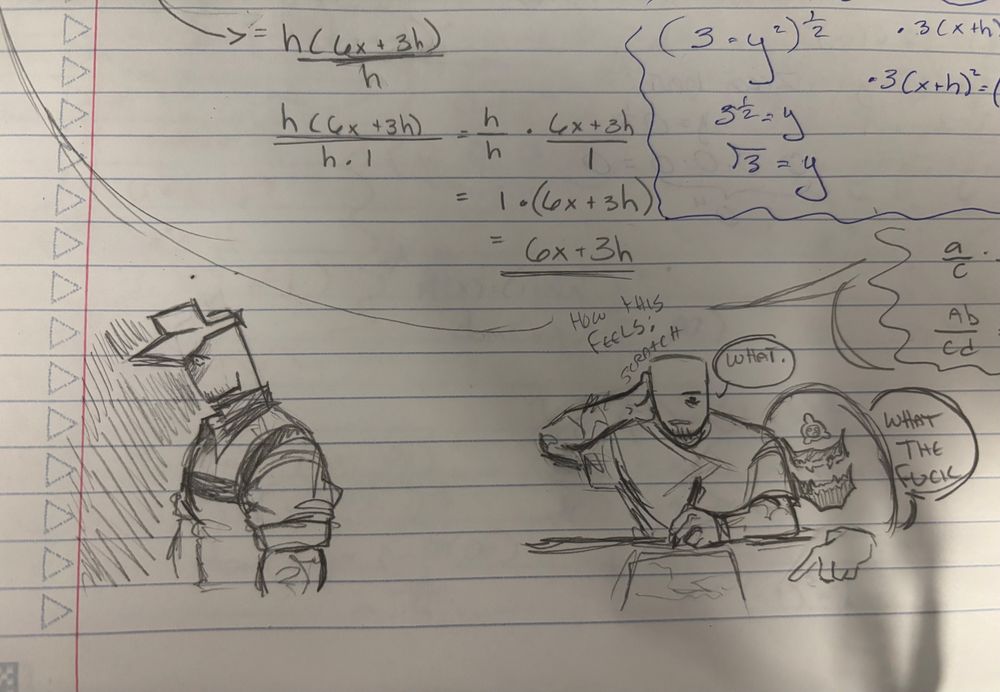 = h(6x+3h)
h
h(6x+3h) = h · 6x+3h
h · 1 h 1
= 1 · (6x+3h)
= 6x+3h
(3 = y²)^½
3^½ = y
√3 = y
· 3(x+h)
· 3(x+h)² = (
a
c
Ab
cd
HOW THIS
FEELS:
SCRATCH
WHAT.
WHAT
THE
FUCK